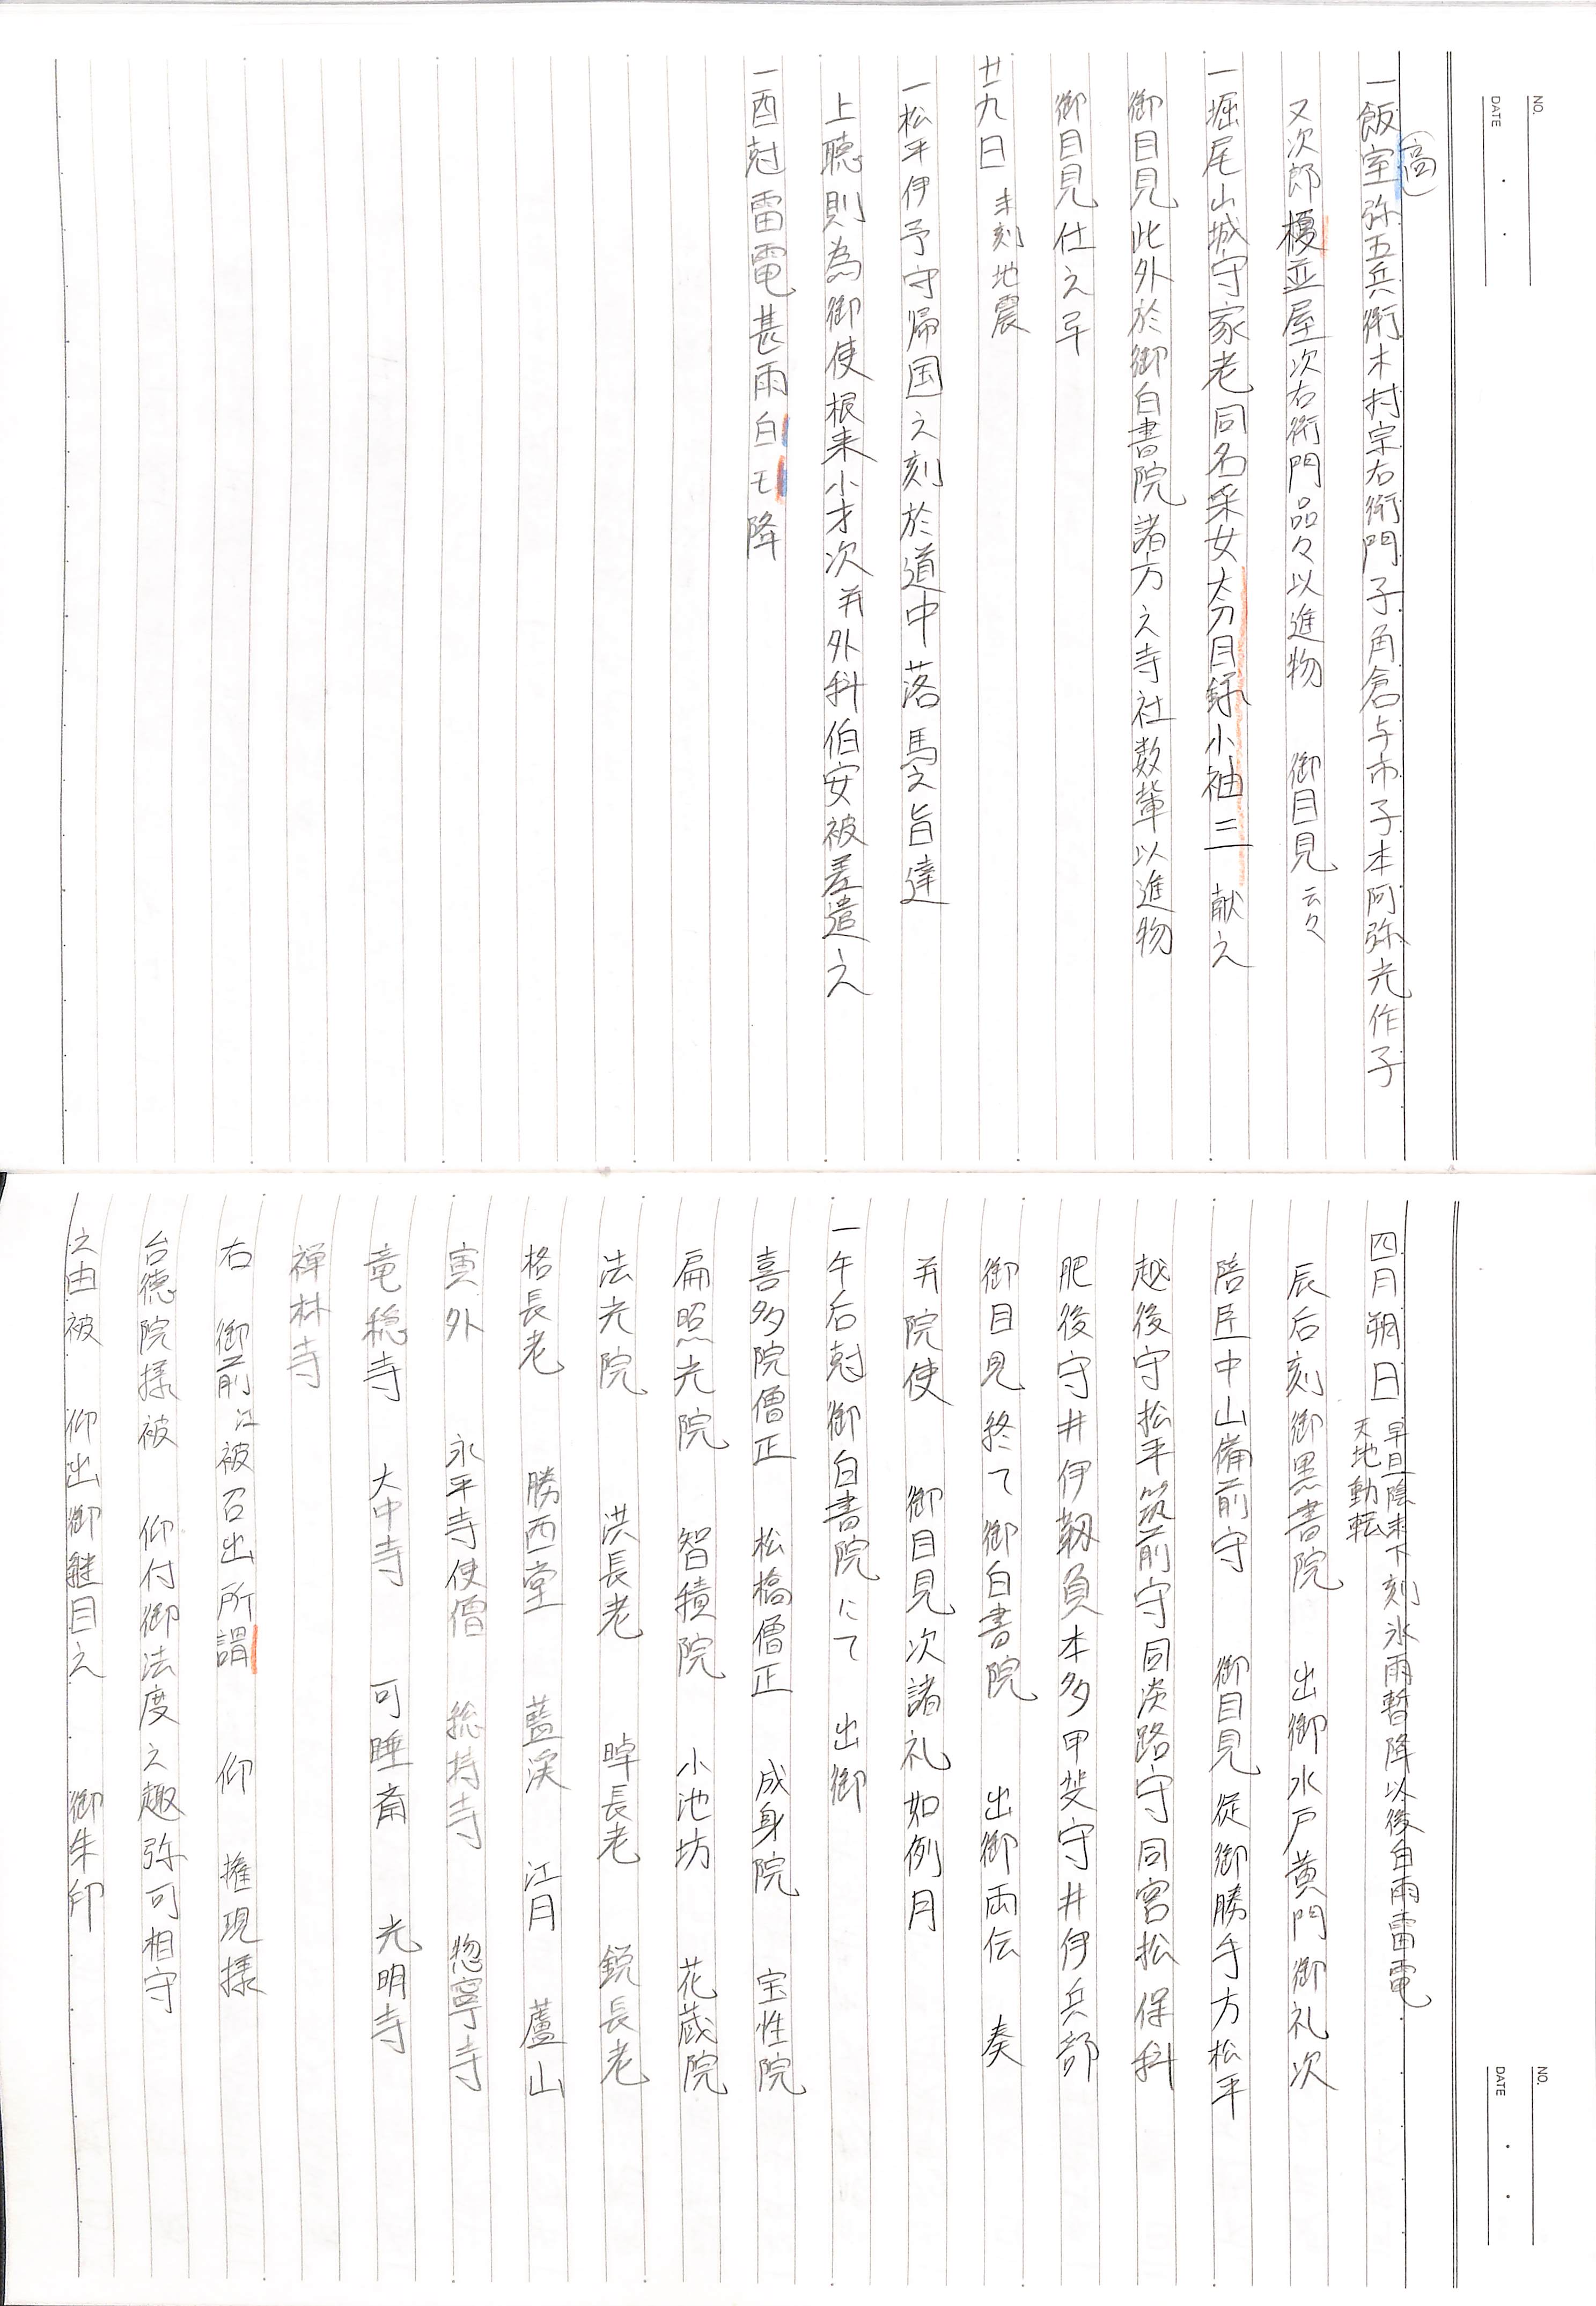 NO.
DATE
(高)
一飯室弥五兵衛木村宗右衛門子角倉与市子本阿弥光作子
又次郎榎並屋次右衛門品々以進物 御目見云々
一堀尾山城守家老同名采女太刀目録小袖三献之
御目見此外於御白書院諸方之寺社数輩以進物
御目見仕之也
廿九日 未刻地震
一松平伊予守帰国之刻於道中落馬之旨達
上聴則為御使根来小才次并外科伯安被差遣之
一酉尅雷電甚雨白毛降
NO.
DATE
四月朔日 早旦陰未下刻氷雨暫降以後白雨雷電
天地動転
辰后刻御黒書院 出御水戸黄門御礼次
陪臣中山備前守 御目見従御勝手方松平
越後守松平筑前守同淡路守同宮松保科
肥後守井伊靱負本多甲斐守井伊兵部
御目見終て御白書院 出御両伝 奏
并院使 御目見次諸礼如例月
一午后尅御白書院にて 出御
喜多院僧正 松橋僧正 成身院 宝性院
扁照光院 智積院 小池坊 花蔵院
法光院 洪長老 晫長老 鋭長老
格長老 勝西堂 藍渓 江月 蘆山
寅外 永平寺使僧 総持寺 惣寧寺
竜穏寺 大中寺 可睡斎 光明寺
禅林寺
右 御前江被召出所謂 仰 権現様
台徳院様被 仰付御法度之趣弥可相守
之由被 仰出御継目之 御朱印